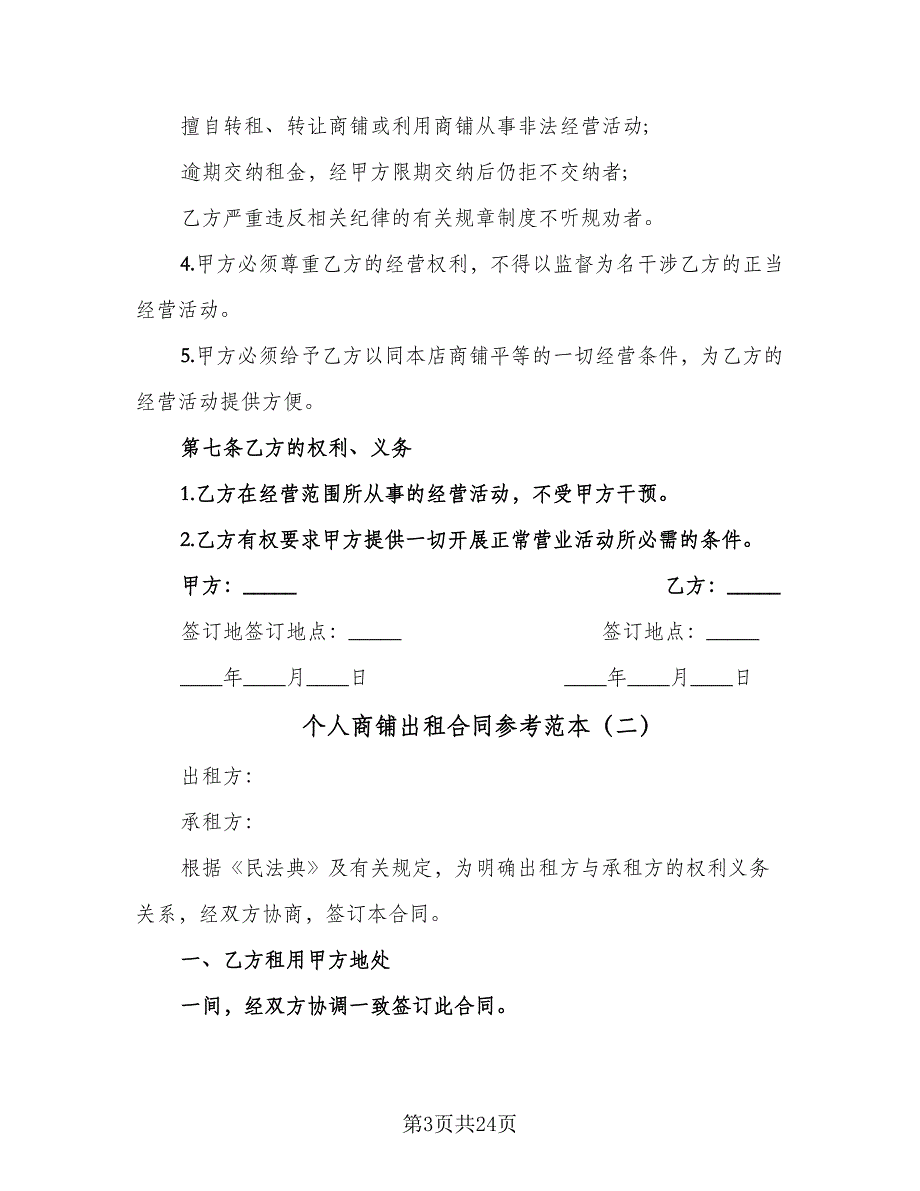 擅自转租、转让商铺或利用商铺从事非法经营活动;
逾期交纳租金，经甲方限期交纳后仍拒不交纳者;
乙方严重违反相关纪律的有关规章制度不听规劝者。
4.甲方必须尊重乙方的经营权利，不得以监督为名干涉乙方的正当
经营活动。
5.甲方必须给予乙方以同本店商铺平等的一切经营条件，为乙方的
经营活动提供方便。
第七条乙方的权利、义务
1.乙方在经营范围所从事的经营活动，不受甲方干预。
2.乙方有权要求甲方提供一切开展正常营业活动所必需的条件。
甲方：_____ 乙方：_____
签订地签订地点：_____ 签订地点：_____
____年____月____日 ____年____月____日
个人商铺出租合同参考范本（二）
出租方：
承租方：
根据《民法典》及有关规定，为明确出租方与承租方的权利义务
关系，经双方协商，签订本合同。
一、乙方租用甲方地处
一间，经双方协调一致签订此合同。
第3页共24页